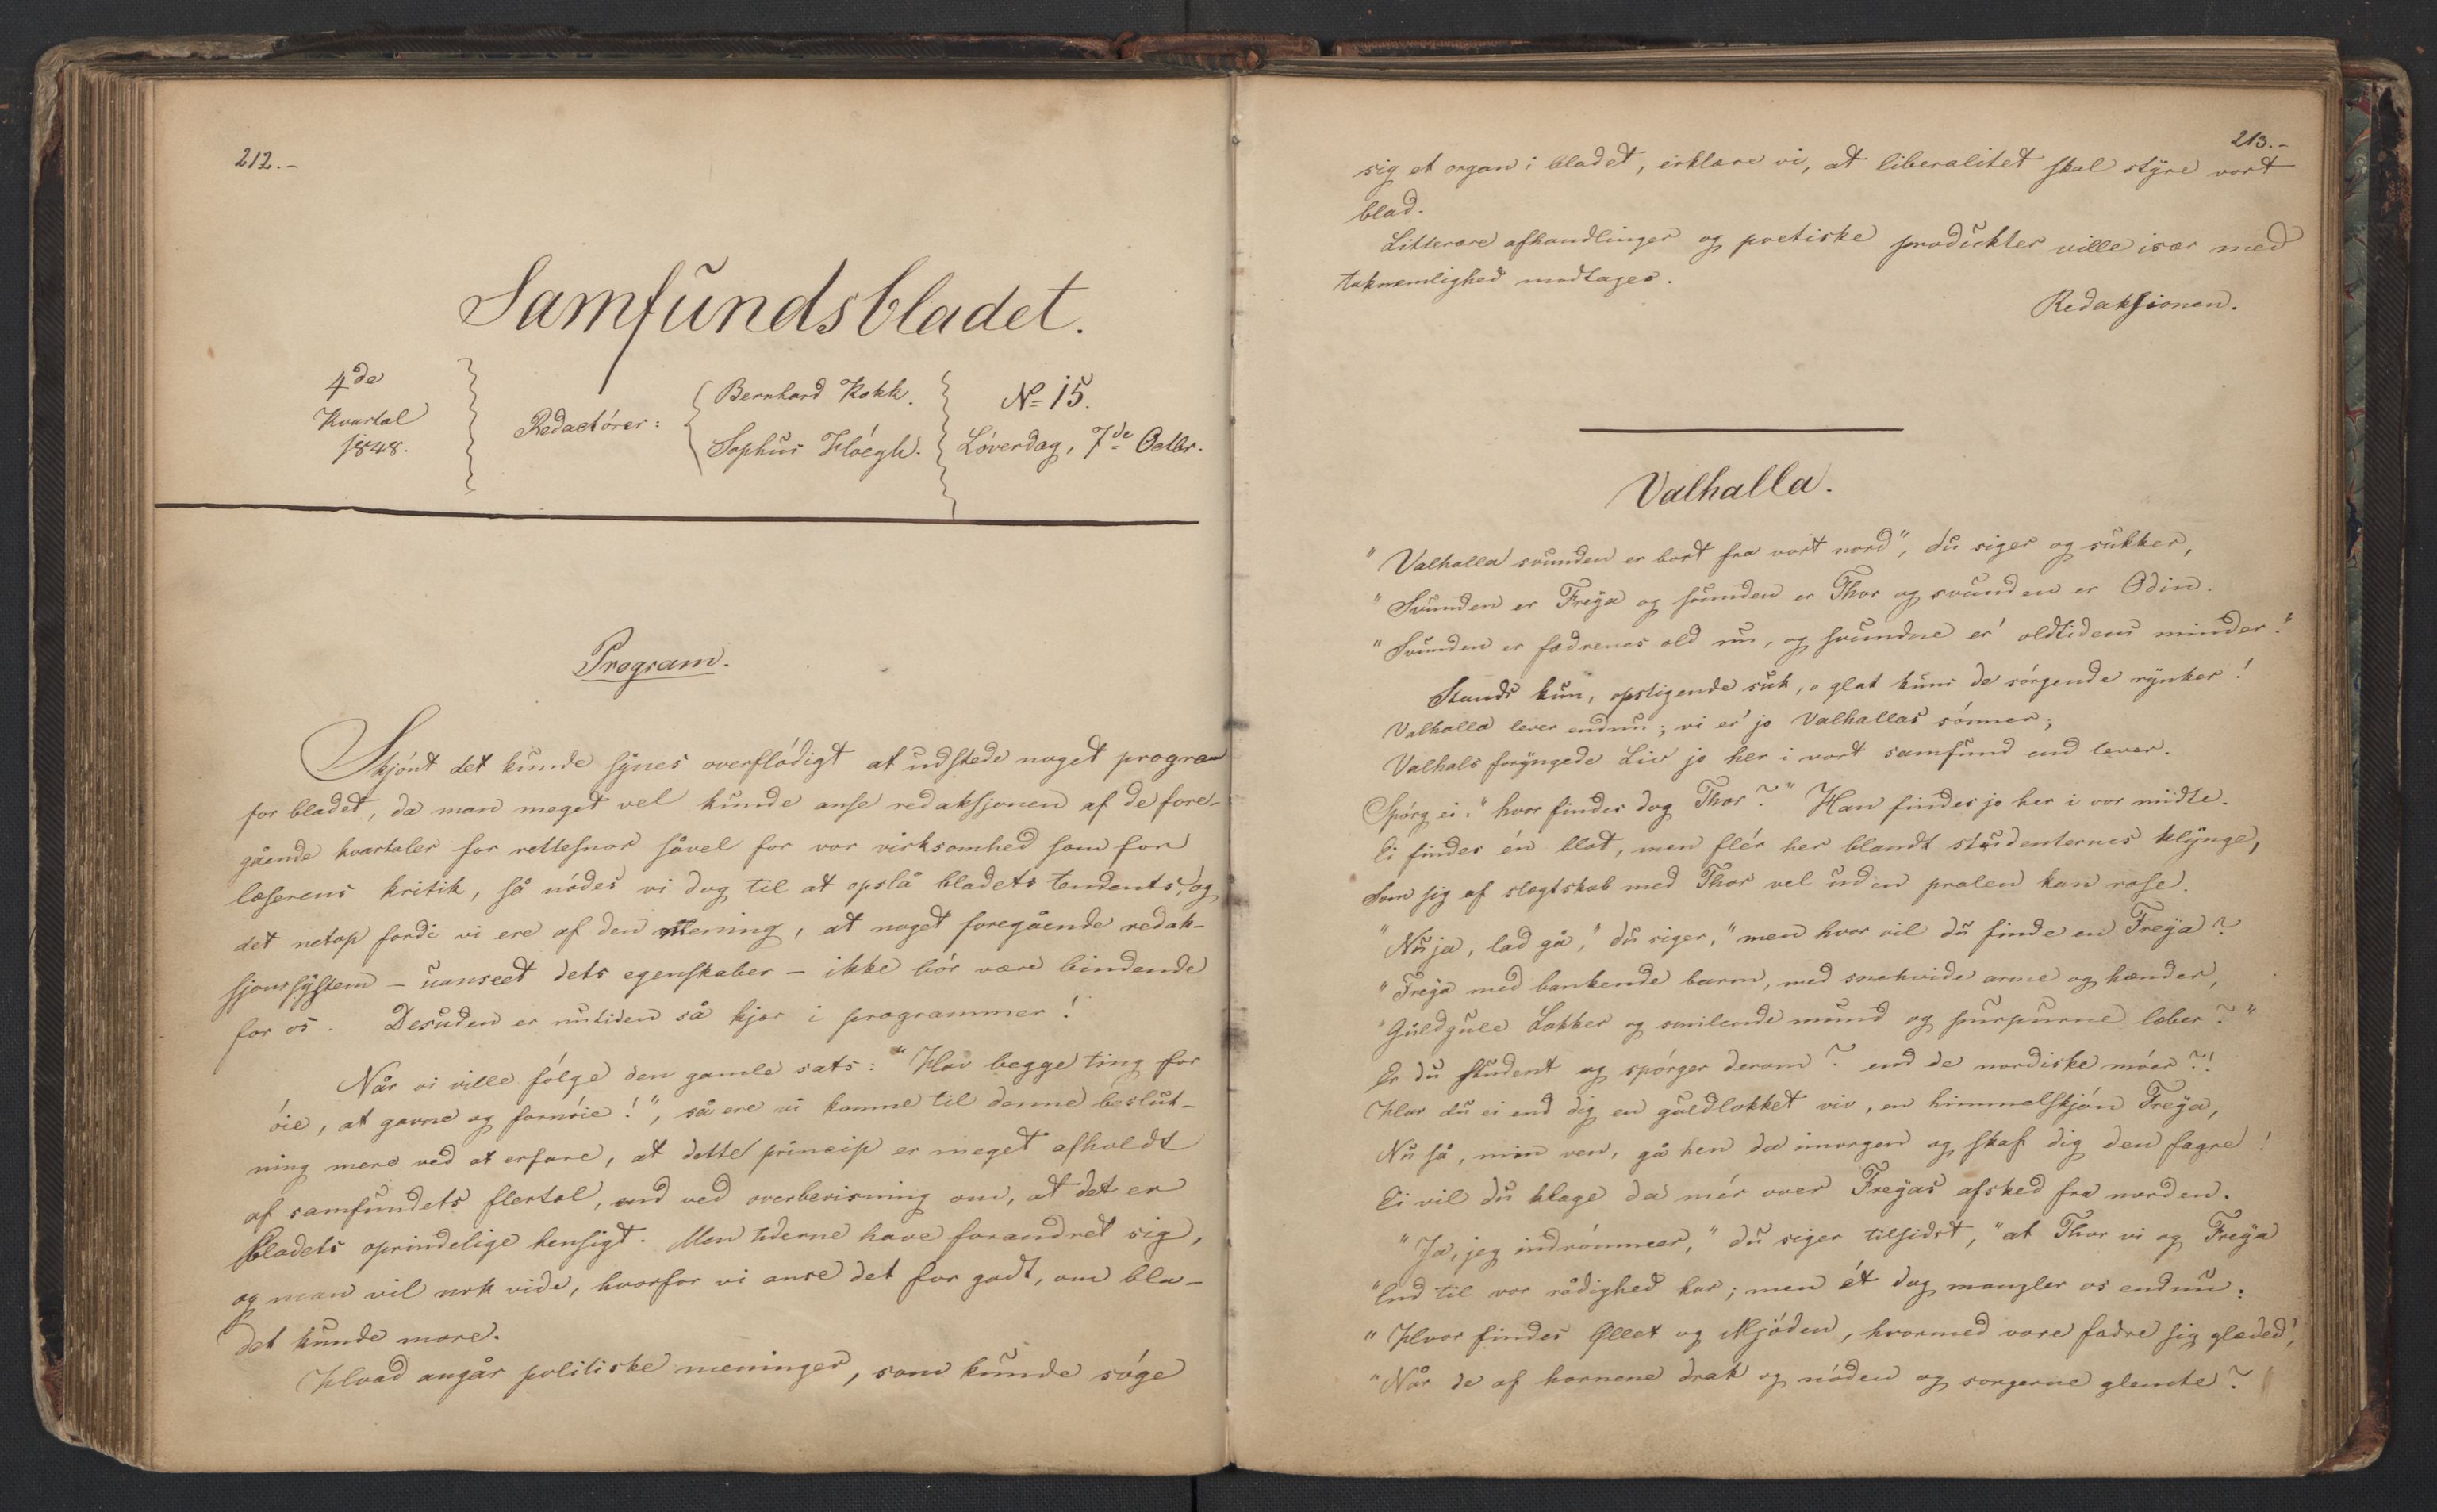 212.-
Samfundsbladet.
4de
Kvartal
1848.
Redactörer:
Bernhard Kokk.
Sophus Høegh.
No 15.
Löverdag, 7de Octbr.
Program.
Skjónt det kunde synes overflódigt at udstede noget program
for bladet, da man meget vel kunde anse redaksjonen af de fore-
gående kvartaler for rettesnor såvel for vor virksomhed som for
læserens kritik, så nódes vi dog til at opslå bladets tendents, og
det netop fordi vi ere af den mening, at noget foregående redak-
sjonssystem - uanseet dets egenskaber - ikke bór være bindende
for os. Desuden er nutiden så kjær i programmer!
Når vi ville fólge den gamle sats: "Hav begge ting for
óie, at gavne og fornóie!", så ere vi komne til denne beslut-
ning mere ved at erfare, at dette princip er meget afholdt
af samfundets flertal, end ved overbevisning om, at det er
bladets oprindelige hensigt. Men tiderne have forandret sig,
og man vil nok vide, hvorfor vi anse det for godt, om bla-
det kunde more.
Hvad angår politiske meninger, som kunde sóge
213.-
sig et organ i bladet, erklære vi, at liberalitet skal styre vort
blad.
Litterære afhandlinger og poetiske produkter ville især med
taknemlighed modtages.
Redaksjonen.
Valhalla.
"Valhalla svunden er bort fra vort nord", du siger og sukker,
"Svunden er Freya og svunden er Thor og svunden er Odin.
"Svunden er fædrenes old nu, og svundne er' oldtidens minder."
Stands kun, opstigende suk, o glat kuns de sórgende rynker!
Valhalla lever endnu; vi er' jo Valhallas sónner;
Valhals foryngede Liv jo her i vort samfund end lever.
Spórg ei: "hvor findes dog Thor?" Han findes jo her i vor midte.
Ei findes én blot, men flér her blandt studenternes klynge,
Som sig af slægtskab med Thor vel uden pralen kan rose.
"Nu ja, lad gå," du siger, "men hvor vil du finde en Freya?
"Freya med bankende barm, med snehvide arme og hænder,
"Guldgule Lokker og smilende mund og purpurne læber?"
Er du student og spórger derom? end de nordiske móer?!
Har du ei end dig en guldlokket viv, en himmelskjón Freya,
Nu så, min ven, gå hen da imorgen og skaf dig den fagre!
Ei vil du klage da mér over Freyas afsked fra norden.
"Ja, jeg indrómmer," du siger tilsidst, "at Thor vi og Freya
"End til vor rådighed har; men ét dog mangler os endnu:
"Hvor findes Øllet og Mjóden, hvormed vore fædre sig glæded',
"Når de af hornene drak og nóden og sorgerne glemte?